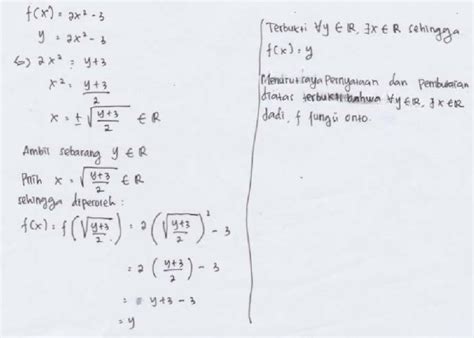 f(x) = 2x² - 3
y = 2x² - 3
⇔ 2x² = y+3
x² = \frac{y+3}{2}
x = ± \sqrt{\frac{y+3}{2}} ∈ R
Ambil sebarang y ∈ R
Pilih x = \sqrt{\frac{y+3}{2}} ∈ R
sehingga diperoleh :
f(x) = f(\sqrt{\frac{y+3}{2}}) = 2(\sqrt{\frac{y+3}{2}})² - 3
= 2(\frac{y+3}{2}) - 3
= y+3 - 3
= y
Terbukti ∀y ∈ R, ∃x ∈ R sehingga
f(x) = y
Menurut saya Pernyataan dan pembuktian
diatas terbukti bahwa ∀y ∈ R, ∃x ∈ R
Jadi, f fungsi onto.